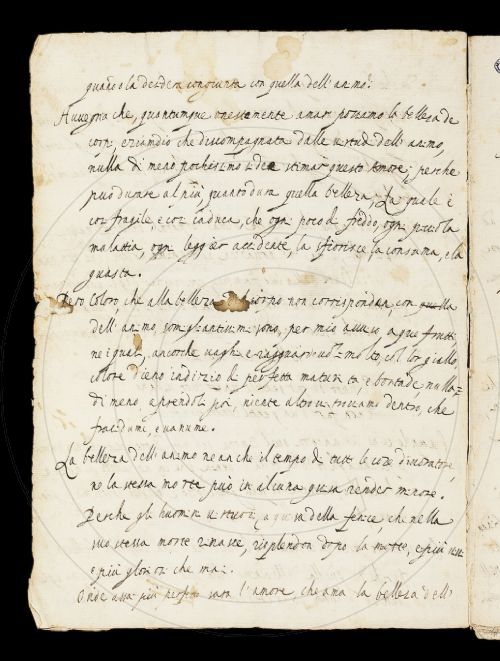 quando la desidera congiunta con quella dell'animo.
Avvegna che, quantunque onestamente amar possiamo la bellezza de
corpi eziamdio che discompagnata dalle virtù dell'animo,
nulla di meno pochissimo si dee stimar questo Amore; perche
può durare al più quanto dura quella bellezza; La quale è
così fragile, e così caduca, che ogni poco di freddo, ogni piccola
malattia, ogni leggier accidente, la sfiorisce la consuma, e la
guasta.
Pero coloro che alla bellezza del corpo non corrispondan, con quella
dell'animo, somigliantissimi sono, per mio avviso a que frutti,
ne i quali, ancorche vaghi e ragguardevoli molto, col lor giallo
colore dieno indizio di perfetta maturità e bontade, nulla=
di meno, aprendoli poi, niente altro vi troviamo dentro, che
fracidume, e vanume.
La bellezza dell'animo ne anchi il tempo di tutte le cose divoratore,
ne la stessa morte può in alcuna guisa render minore.
Perche gli huomini virtuosi, a guisa della fenice che nella
sua stessa morte rinasce, risplendon dopo la morte, e più
e più gloriosi che mai.
Onde assai più perfetto sarà l'amore, che ama la bellezza dell'